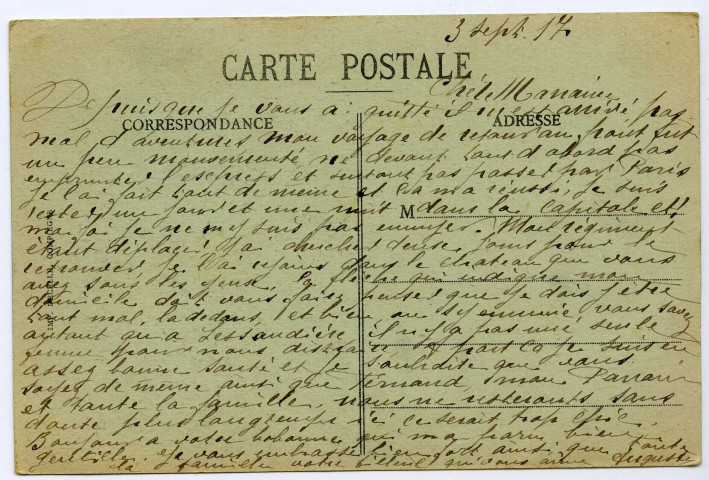 3 sept. 17
CARTE POSTALE
Chère Marraine
Depuis que je vous ai quitté il m'est arrivé pas
CORRESPONDANCE
ADRESSE
mal d'aventures mon voyage de retour au front fut
un peu mouvementé ne devant tout d'abord pas
emprunter l'express et surtout pas passer par Paris
je l'ai fait tout de meme et ca m'a reussi, je suis
resté un jour et une nuit dans la Capitale et
M
ma foi je ne m'y suis pas ennuyer. Mon regiment
étant déplacé j'ai cherché deux jours pour le
retrouver, je l'ai rejoins dans le chateau que vous
avez sous les yeux, la fleche qui indique mon
domicile doit vous faire penser que je dois y etre
tant mal, la dedans, et bien on s'y ennuie vous savez
autant qu'a il n'y a pas une seule
femme pour nous a part ca je suis en
assez bonne santé et je souhaite que vous
soyez de meme ainsi que Fernand, mon Parrain
et toute la famille, nous ne resterons sans
doute plus longtemps ici ce serait trop chic,
Bonjour a votre bonne qui m'a parue bien
gentille. je vous embrasse bien fort ainsi que toute
la famille votre filleul qui vous aime Auguste